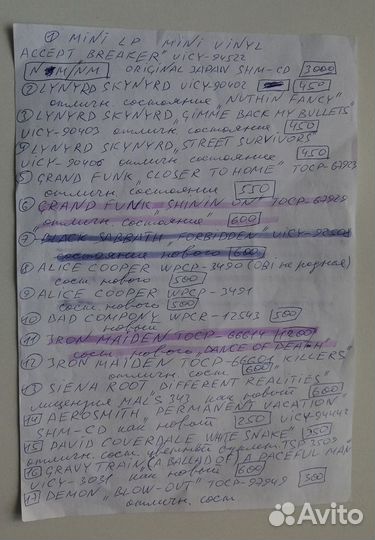 ① MINI LP MINI VINYL
ACCEPT BREAKER" UICY-94522
N M/NM ORIGINAL JAPAN SHM-CD 3000
② LYNYRD SKYNYRD UICY-90402 450
отличн. состояние "NUTHIN FANCY"
③ LYNYRD SKYNYRD „GIMME BACK MY BULLETS"
UICY-90403 отличн. состояние 450
④ LYNYRD SKYNYRD „STREET SURVIVORS"
UICY-90406 отличн состояние 450
⑤ GRAND FUNK „CLOSER TO HOME" TOCP-67923
отличн. состояние 550
⑥ GRAND FUNK „SHININ ON" TOCP-67929
"отличн. состояние" 600
⑦ BLACK SABBATH „FORBIDDEN" UICY
состояние нового 600
⑧ ALICE COOPER WPCP-3490 (OBI не родная)
сост нового 500
⑨ ALICE COOPER WPCP-3491
сост. нового 500
⑩ BAD COMPONY WPCR-12543 500
новый
⑪ IRON MAIDEN TOCP-66614 1200
сост нового „DANCE OF DEATH"
⑫ IRON MAIDEN TOCP-66601 KILLERS"
отличн. сост 600
⑬ SIENA ROOT „DIFFERENT REALITIES"
лицензия MALS 343 как новый 600
⑭ AEROSMITH „PERMANENT VACATION"
SHM-CD как новый 250 UICY-94442
⑮ DAVID COVERDALE WHITE SNAKE" 250
отличн. сост. TSP 3509
⑯ GRAVY TRAIN „(A BALLAD OF) A PACEFUL MAN"
UICY-3031 как новый 600
⑰ DEMON „BLOW-OUT" TOCP-97949 300
отличн. сост
Avito